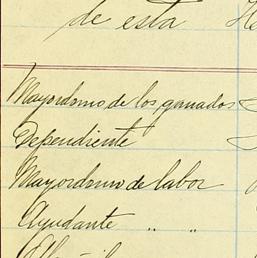 de esta
Mayordomo de los ganados
Dependiente
Mayordomo de labor
Ayudante " "
Albañil